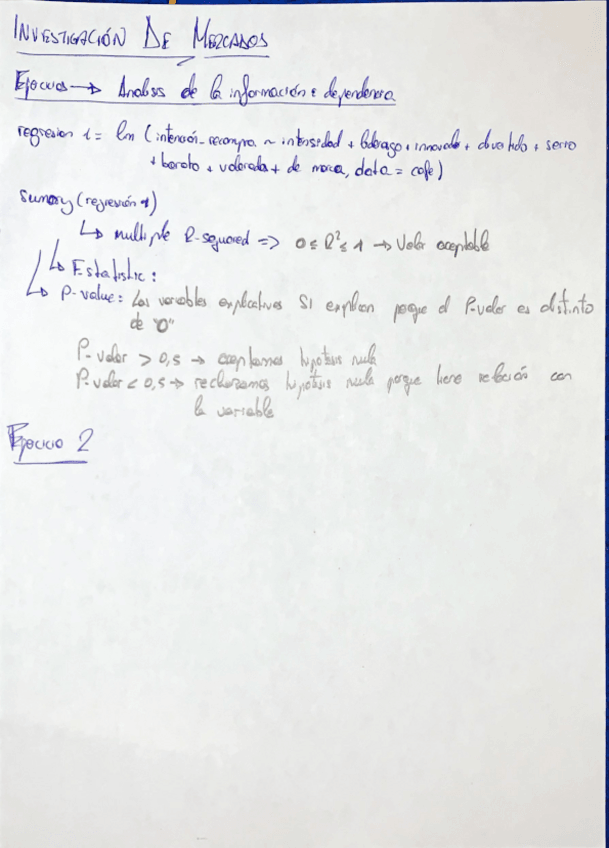 INVESTIGACIÓN DE MERCADOS
Ejercicios → Analisis de la información e dependencia
regresion 1 = lm (intención_recompra ~ intensidad + liderazgo + innovador + divertido + serio
+ barato + valorada + de marca, data = cafe)
Sumary (regresión 1)
↳ multiple R-squared => 0 ≤ R² ≤ 1 → Valor aceptable
↳ F-statistic:
↳ P-value: Las variables explicativas SI explican porque el P-valor es distinto
de "0"
P-valor > 0,5 → aceptamos hipotesis nula
P-valor < 0,5 → rechazamos hipotesis nula porque tiene relación con
la variable
Ejercicio 2